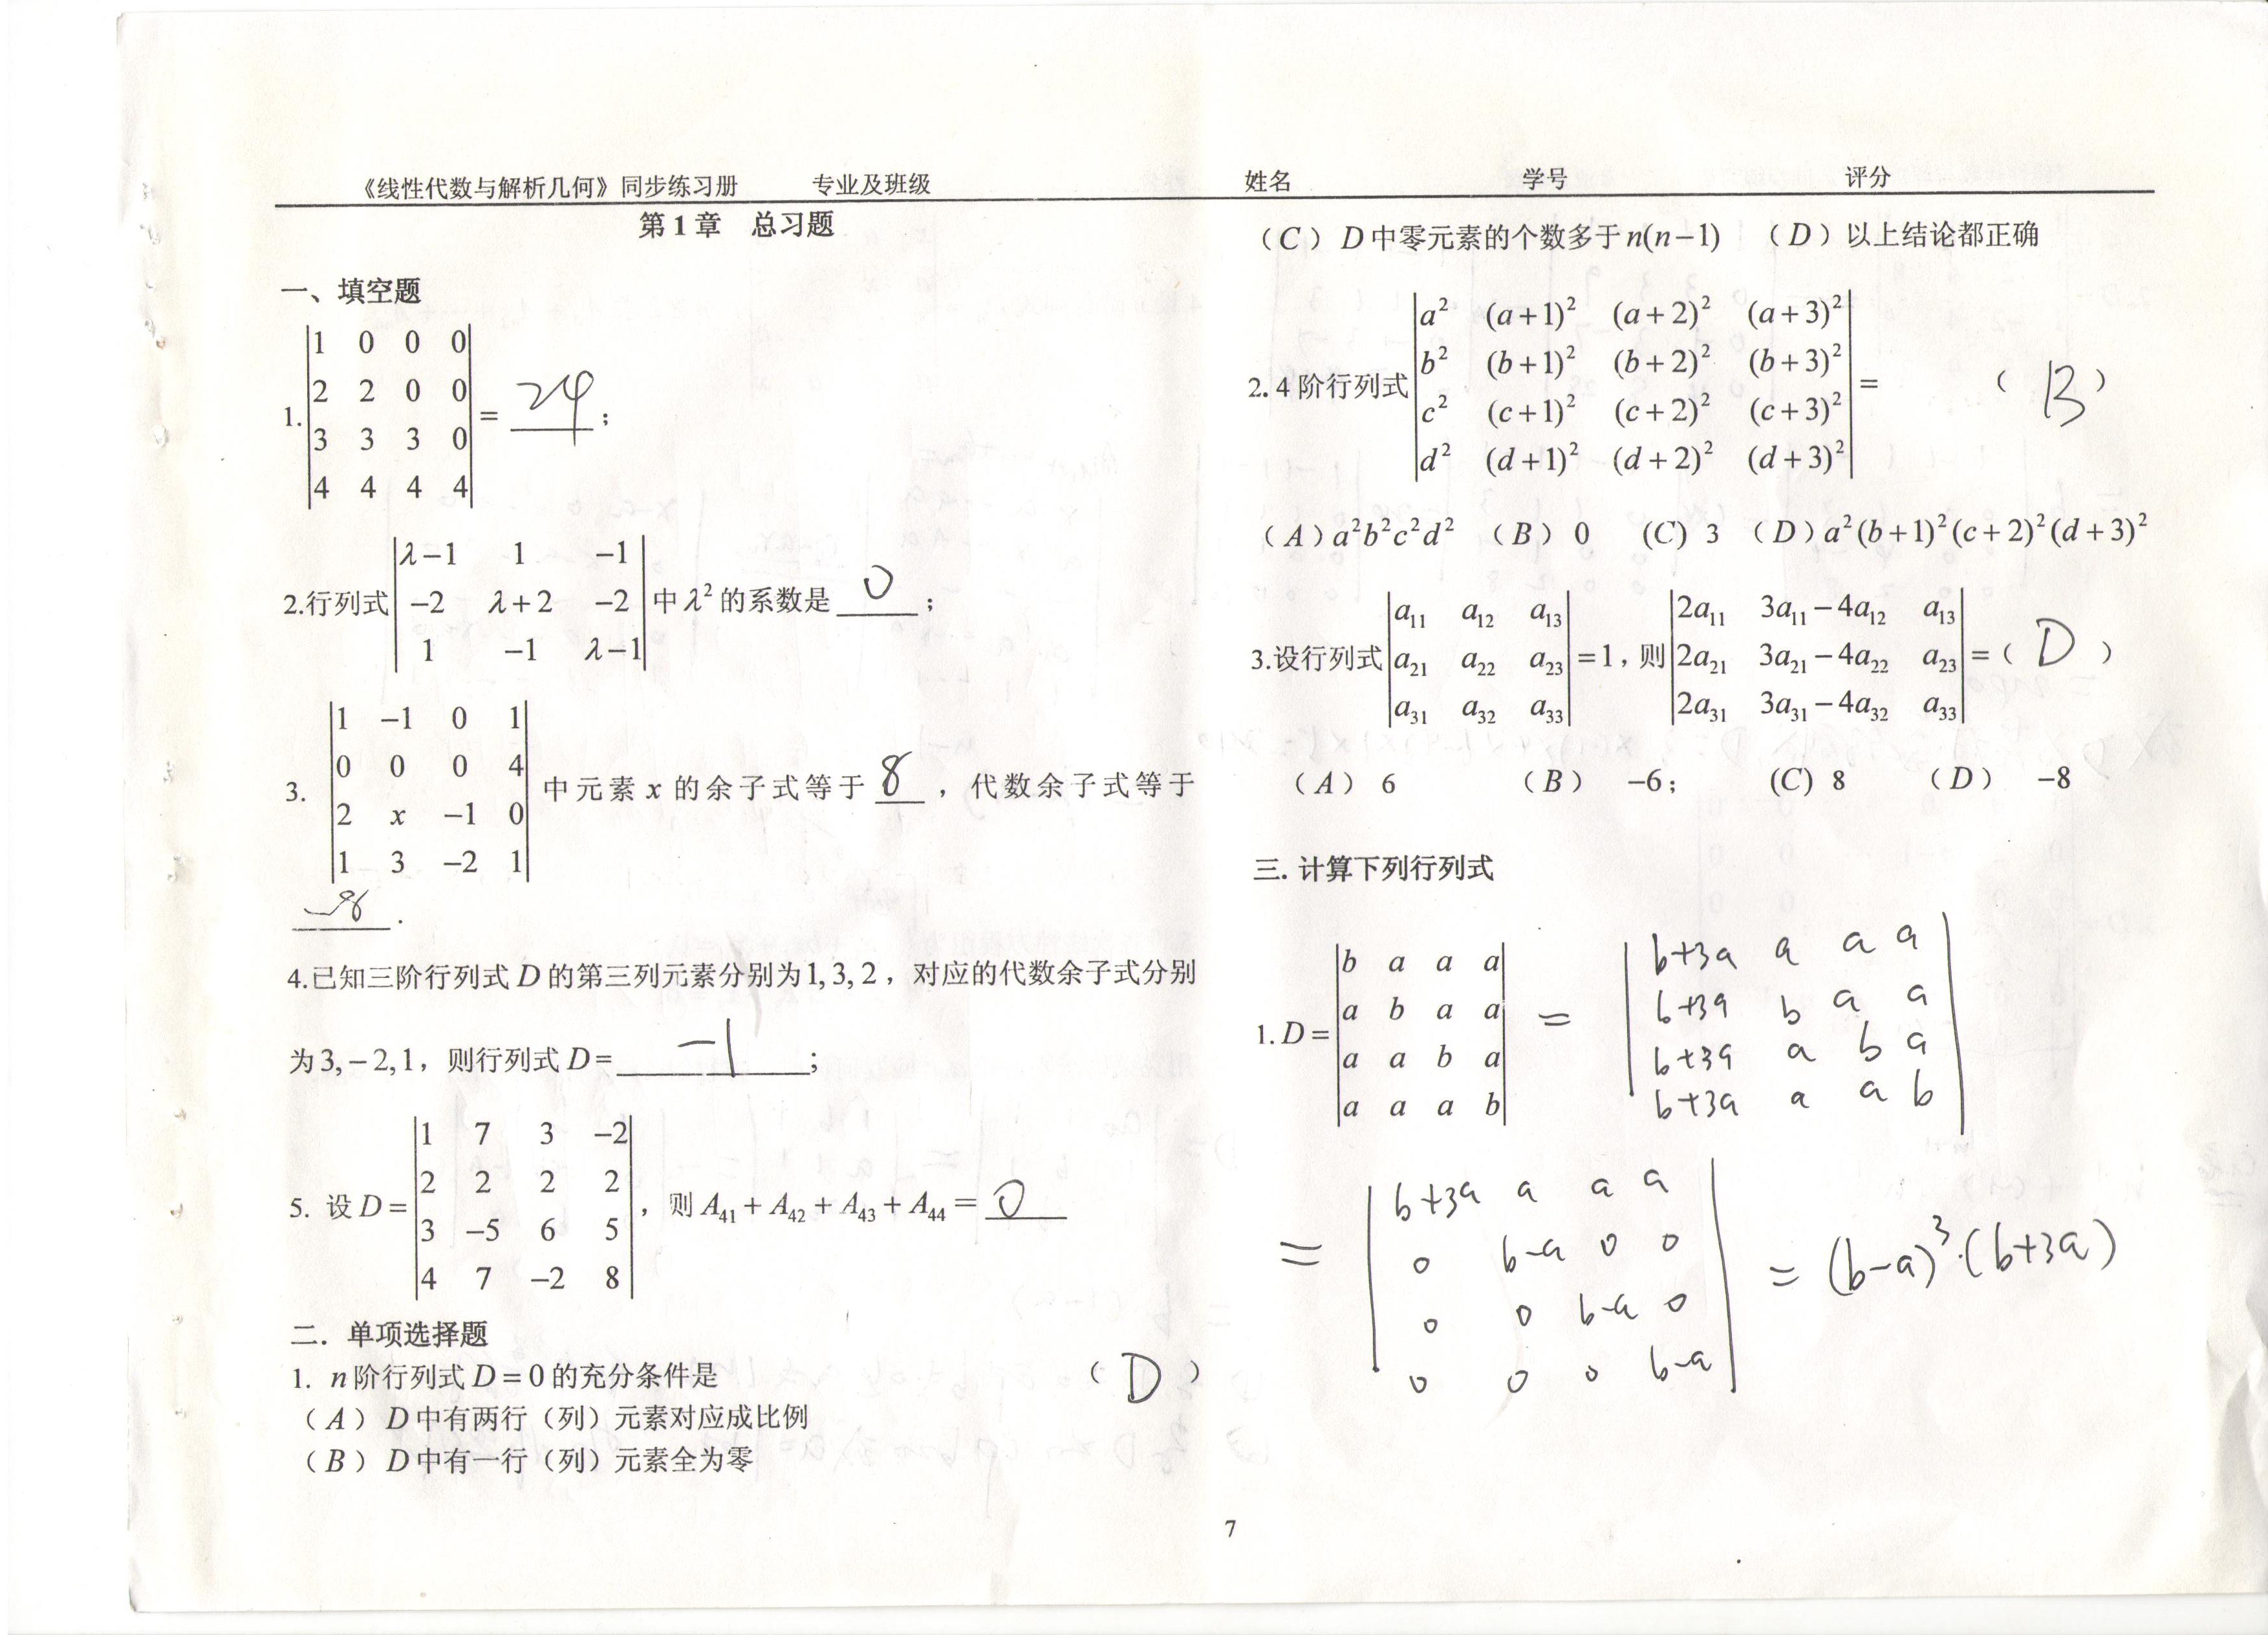 《线性代数与解析几何》同步练习册 专业及班级 姓名 学号 评分
第1章 总习题
一、填空题
1. |1 0 0 0|
|2 2 0 0|
|3 3 3 0|
|4 4 4 4| = 24 ;
2.行列式 |λ−1 1 −1|
|−2 λ+2 −2|
|1 −1 λ−1| 中λ²的系数是 0 ;
3. |1 −1 0 1|
|0 0 0 4|
|2 x −1 0|
|1 3 −2 1| 中元素 x 的余子式等于 8 ，代数余子式等于
−8 .
4.已知三阶行列式 D 的第三列元素分别为1, 3, 2，对应的代数余子式分别
为3, −2, 1，则行列式 D= −1 ;
5. 设 D= |1 7 3 −2|
|2 2 2 2|
|3 −5 6 5|
|4 7 −2 8| ，则 A₄₁ + A₄₂ + A₄₃ + A₄₄ = 0
二．单项选择题
1. n阶行列式 D=0的充分条件是 （ D ）
（A）D中有两行（列）元素对应成比例
（B）D中有一行（列）元素全为零
（C）D中零元素的个数多于n(n−1) （D）以上结论都正确
2. 4阶行列式 |a² (a+1)² (a+2)² (a+3)²|
|b² (b+1)² (b+2)² (b+3)²|
|c² (c+1)² (c+2)² (c+3)²|
|d² (d+1)² (d+2)² (d+3)²| = （ B ）
（A）a²b²c²d² （B）0 (C) 3 （D）a²(b+1)²(c+2)²(d+3)²
3.设行列式 |a₁₁ a₁₂ a₁₃|
|a₂₁ a₂₂ a₂₃|
|a₃₁ a₃₂ a₃₃| =1，则 |2a₁₁ 3a₁₁−4a₁₂ a₁₃|
|2a₂₁ 3a₂₁−4a₂₂ a₂₃|
|2a₃₁ 3a₃₁−4a₃₂ a₃₃| =（ D ）
（A）6 （B）−6； (C) 8 （D）−8
三. 计算下列行列式
1. D= |b a a a|
|a b a a|
|a a b a|
|a a a b|
= |b+3a a a a|
|b+3a b a a|
|b+3a a b a|
|b+3a a a b|
= |b+3a a a a|
|0 b−a 0 0|
|0 0 b−a 0|
|0 0 0 b−a| = (b−a)³·(b+3a)
7